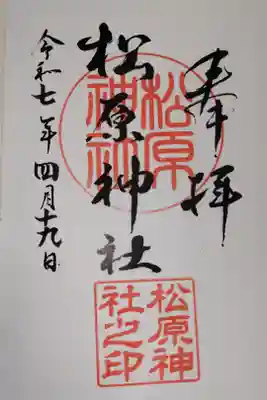 奉拝
松原神社
令和七年四月十九日
松原神社
松原神社之印